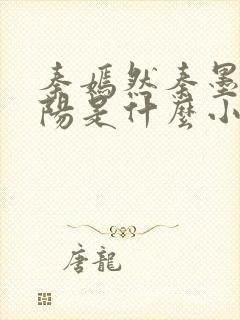 秦嫣然秦墨
陽是什麼小
唐龍